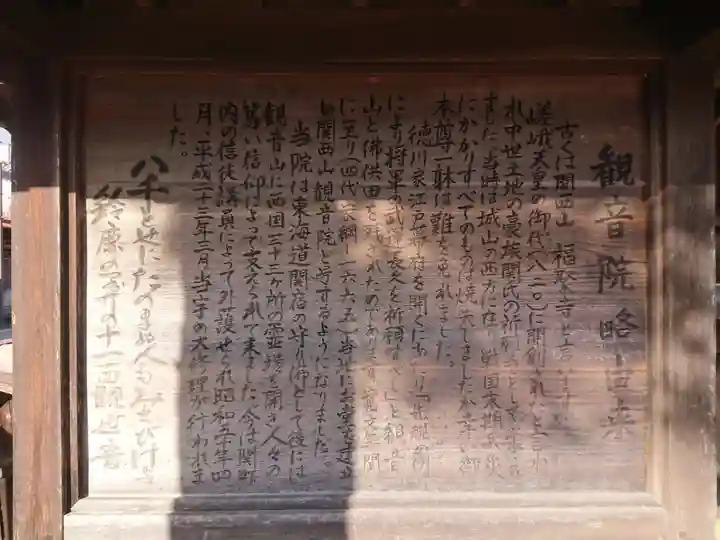 観音院略由来
古くは関西山 福聚寺と言います
嵯峨天皇の御代(八二〇)に開創されたと言わ
れ中世土地の豪族関氏の祈
ました 当時は城山の西方に在 戦国末期兵火
にかかりすべてのものは焼失しましたが幸い御
本尊一躰は難を免れました。
徳川家江戸幕府を開くにあたり
により将軍の武運長久を祈願すべしと観音
山と佛供田を
に至り(四代家綱一六六五)当地にお堂を建立
し関西山観音院と号するようになりました。
当院は東海道関宿の守り佛として後には
観音山に西国三十三ヶ所の霊場を開き人々の
篤い信仰によって支えられて来ました 今は関町
内の信徒講員によって外護せられ昭和五十年四
月、平成二十三年三月当寺の大修理が行われま
した。
八千と世にたのまぬ人もみさびけ
鈴鹿の関の十一面観世音